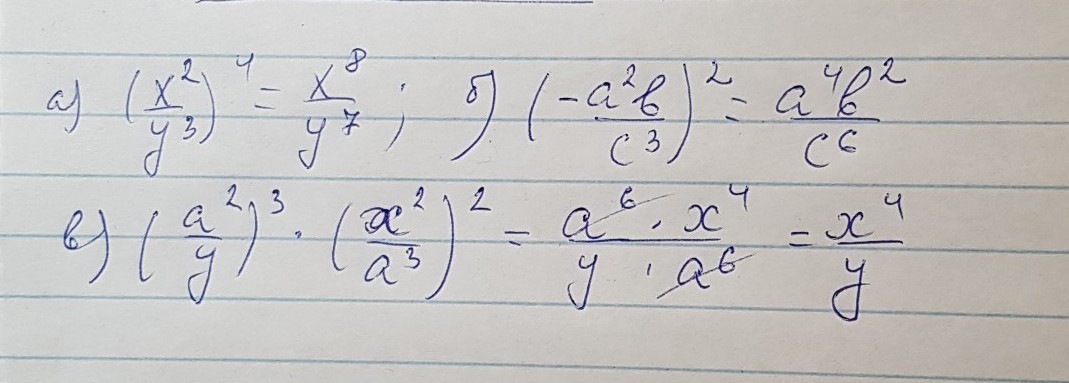 а) (x²/y³)⁴ = x⁸/y⁷ ; б) (-a²b/c³)² = a⁴b²/c⁶
в) (a²/y)³ · (x²/a³)² = a⁶ · x⁴/y · a⁶ = x⁴/y